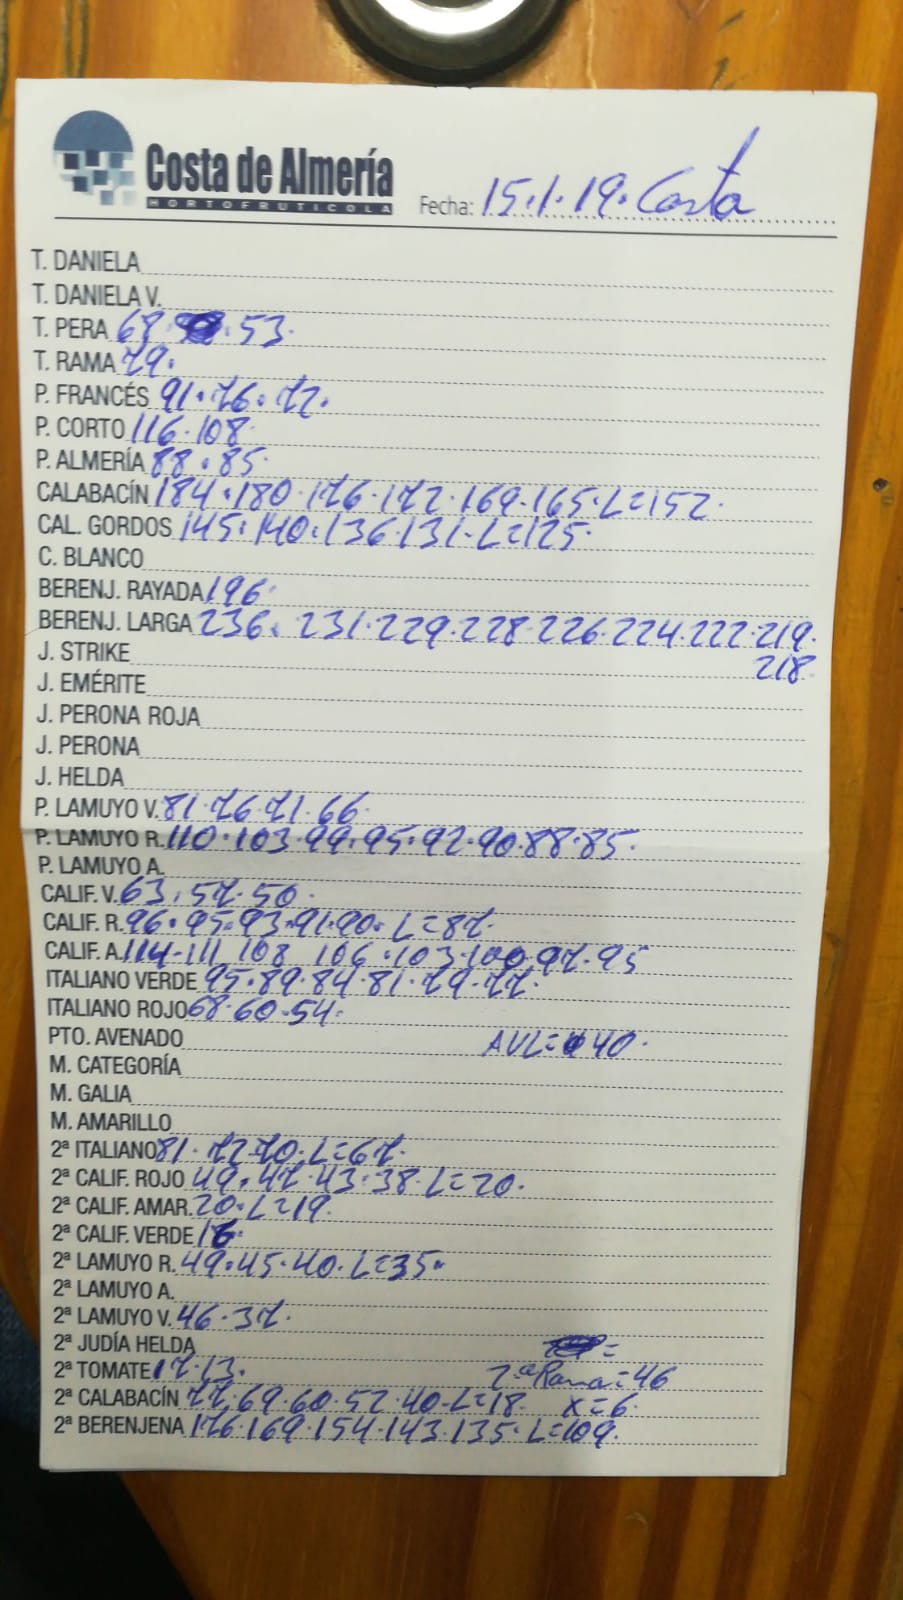 Costa de Almería
HORTOFRUTICOLA
Fecha: 15.1.19. Costa
T. DANIELA
T. DANIELA V.
T. PERA 68 . 53.
T. RAMA 79.
P. FRANCÉS 91.76.72.
P. CORTO 116.108.
P. ALMERÍA 88.85.
CALABACÍN 184.180.176.172.169.165.L=152.
CAL. GORDOS 145.140.136.131-L=125.
C. BLANCO
BERENJ. RAYADA 196.
BERENJ. LARGA 236. 231.229.228.226.224.222.219.
218.
J. STRIKE
J. EMÉRITE
J. PERONA ROJA
J. PERONA
J. HELDA
P. LAMUYO V. 81.76.71.66.
P. LAMUYO R. 110.103.99.95.92.90.88.85.
P. LAMUYO A.
CALIF. V. 63.57.50.
CALIF. R. 96.95.93.91.90.L=87.
CALIF. A. 114-111 108 106.103.100.97.95
ITALIANO VERDE 95.89.84.81.79.77.
ITALIANO ROJO 68.60.54.
PTO. AVENADO AVL= 40.
M. CATEGORÍA
M. GALIA
M. AMARILLO
2ª ITALIANO 81.72.70.L=67.
2ª CALIF. ROJO 49.47.43.38.L=20.
2ª CALIF. AMAR. 20.L=19.
2ª CALIF. VERDE 16
2ª LAMUYO R. 49.45.40.L=35.
2ª LAMUYO A.
2ª LAMUYO V. 46.37.
2ª JUDÍA HELDA =
2ª TOMATE 17.13. 2ª Rama=46
2ª CALABACÍN 77.69.60.52.40-L=18. X=6.
2ª BERENJENA 176.169.154.143.135.L=109.